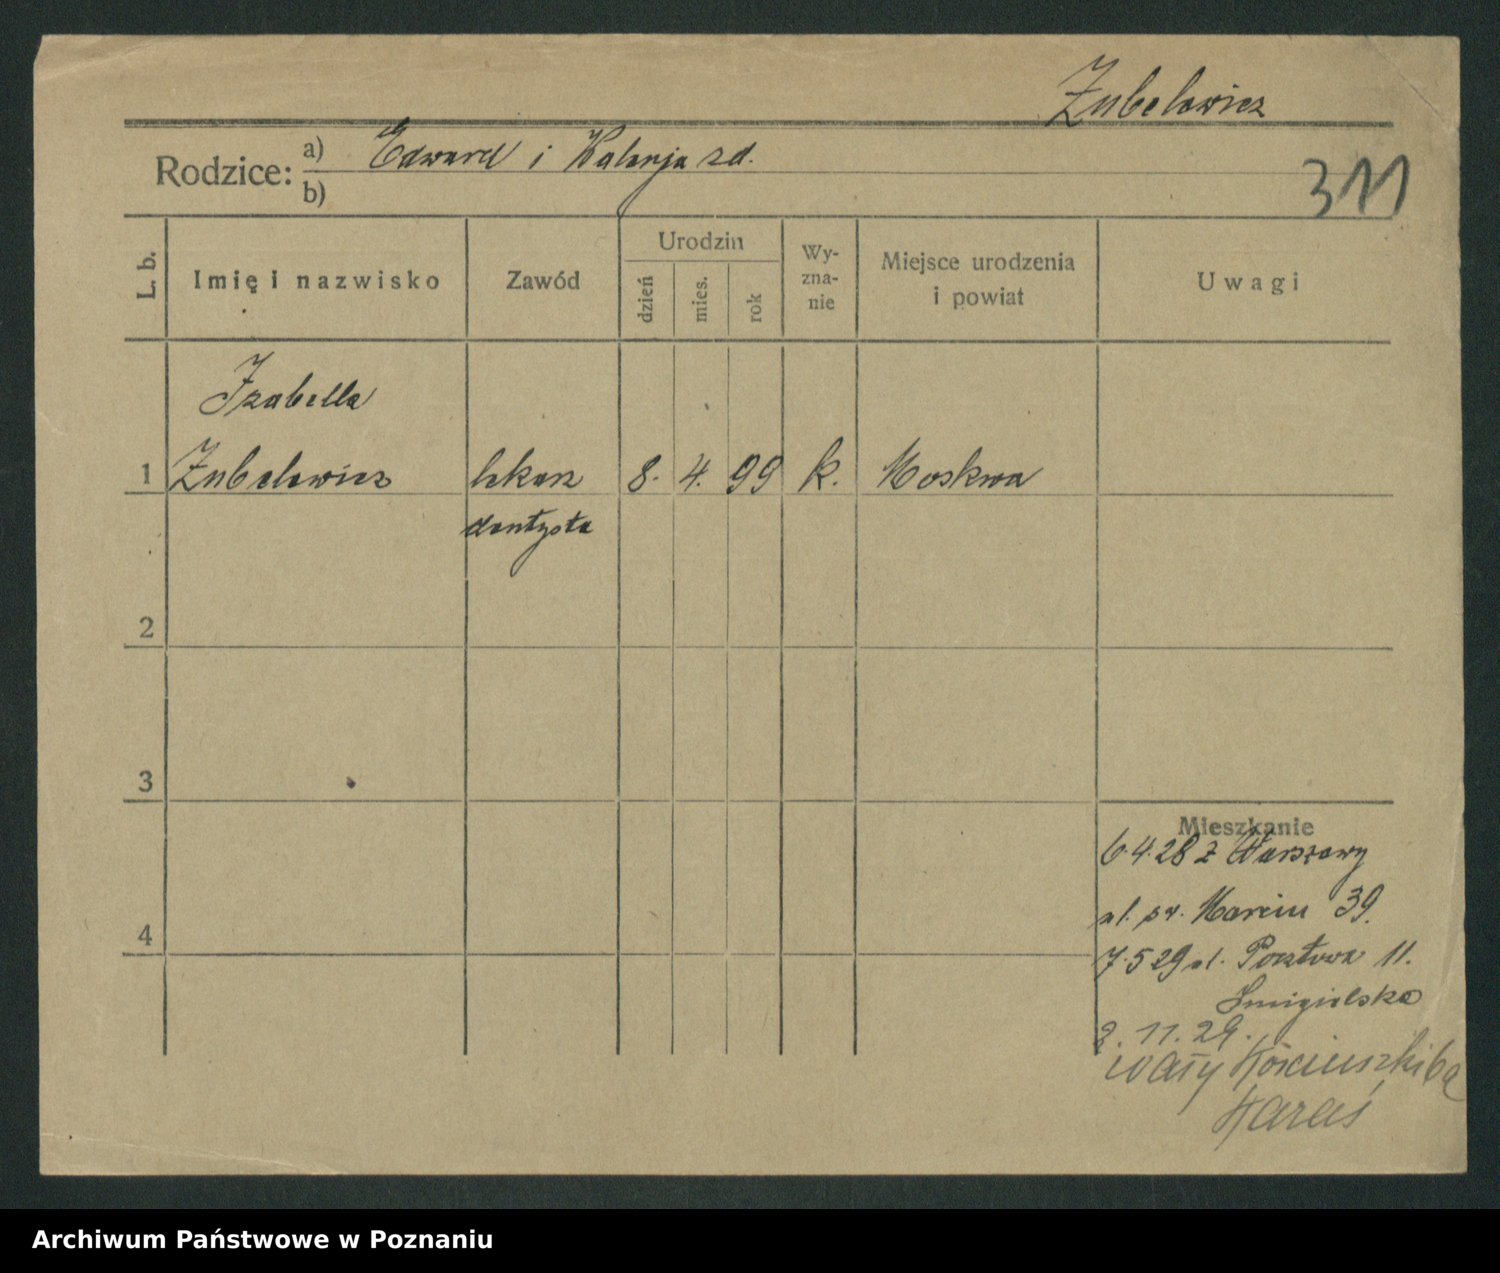 Zubelewicz
Rodzice: a) Edward i Walerja zd.
b)
311
L. b.
Imię i nazwisko
Zawód
Urodzin
dzień
mies.
rok
Wy-
zna-
nie
Miejsce urodzenia
i powiat
Uwagi
Izabella
1 Zubelewicz lekarz 8. 4. 99 k. Moskwa
dentysta
2
3
Mieszkanie
6.4.28 z Warszawy
ul. św. Marcin 39.
4
7.5 29 ul. Pocztowa 11.
Śmigielska
2.11.29.
Wały Kościuszki 6a
Karaś
Archiwum Państwowe w Poznaniu